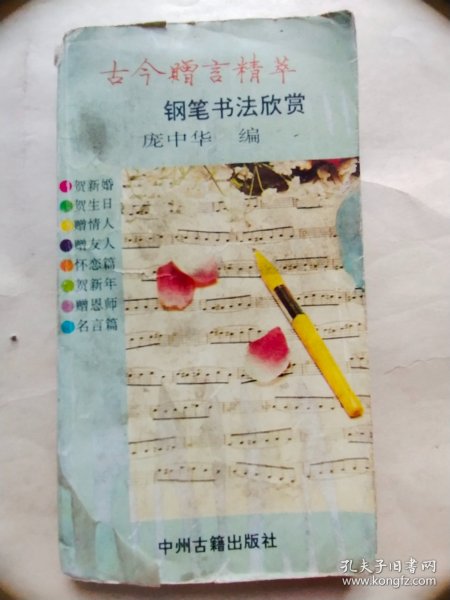 古今赠言精萃
钢笔书法欣赏
庞中华 编
贺新婚
贺生日
赠情人
赠友人
怀恋篇
贺新年
赠恩师
名言篇
中州古籍出版社
孔夫子旧书网
www.kongfz.com